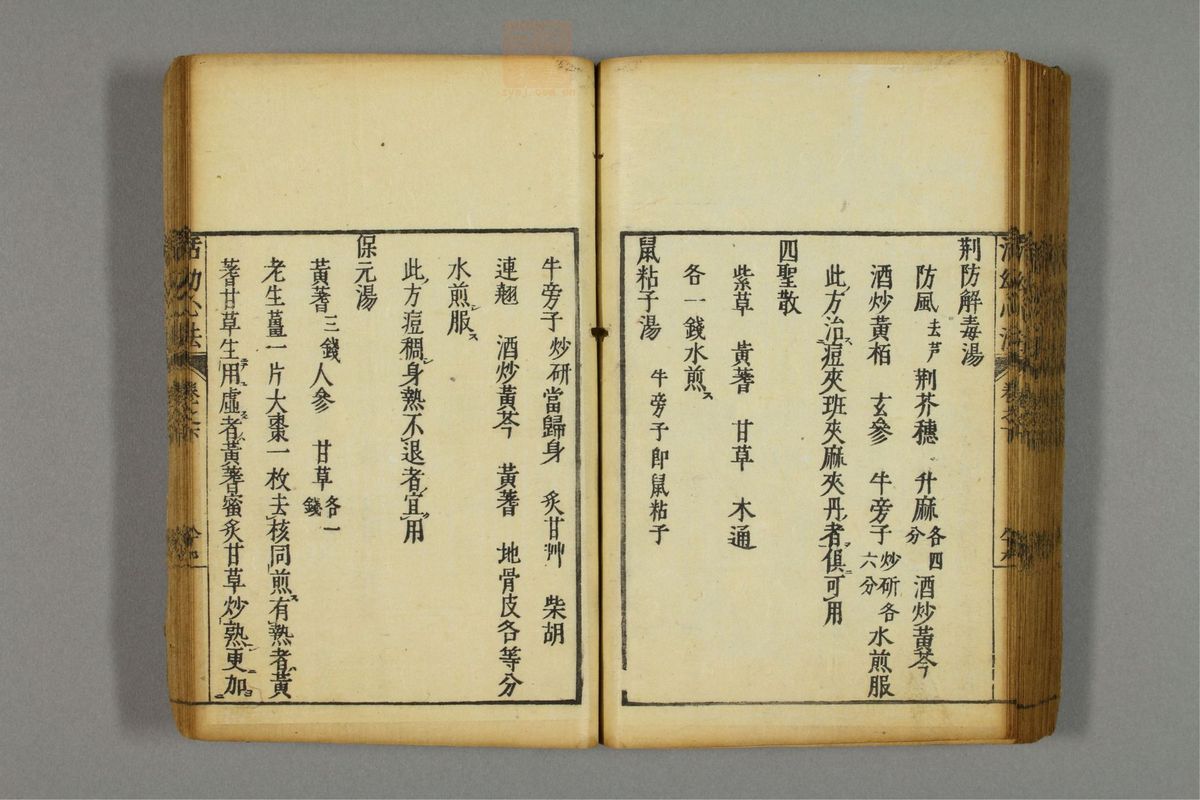 荆防解毒湯
防風去芦 荆芥穗 升麻各四分 酒炒黃芩
酒炒黃栢 玄參 牛旁子炒研各六分 水煎服
此方治痘夾班夾麻夾丹者俱可用
四聖散
紫草 黃蓍 甘草 木通
各一錢水煎ス
鼠粘子湯 牛旁子即鼠粘子
牛旁子炒研當歸身 炙甘艸 柴胡
連翹 酒炒黃芩 黃蓍 地骨皮各等分
水煎服ス
此方痘稠身熱不退者宜用
保元湯
黃蓍三錢人參 甘草各一錢
老生薑一片大棗一枚去核同煎有熱者黃
蓍甘草生用虛者黃蓍蜜炙甘草炒熟更加
活幼心法 卷之下